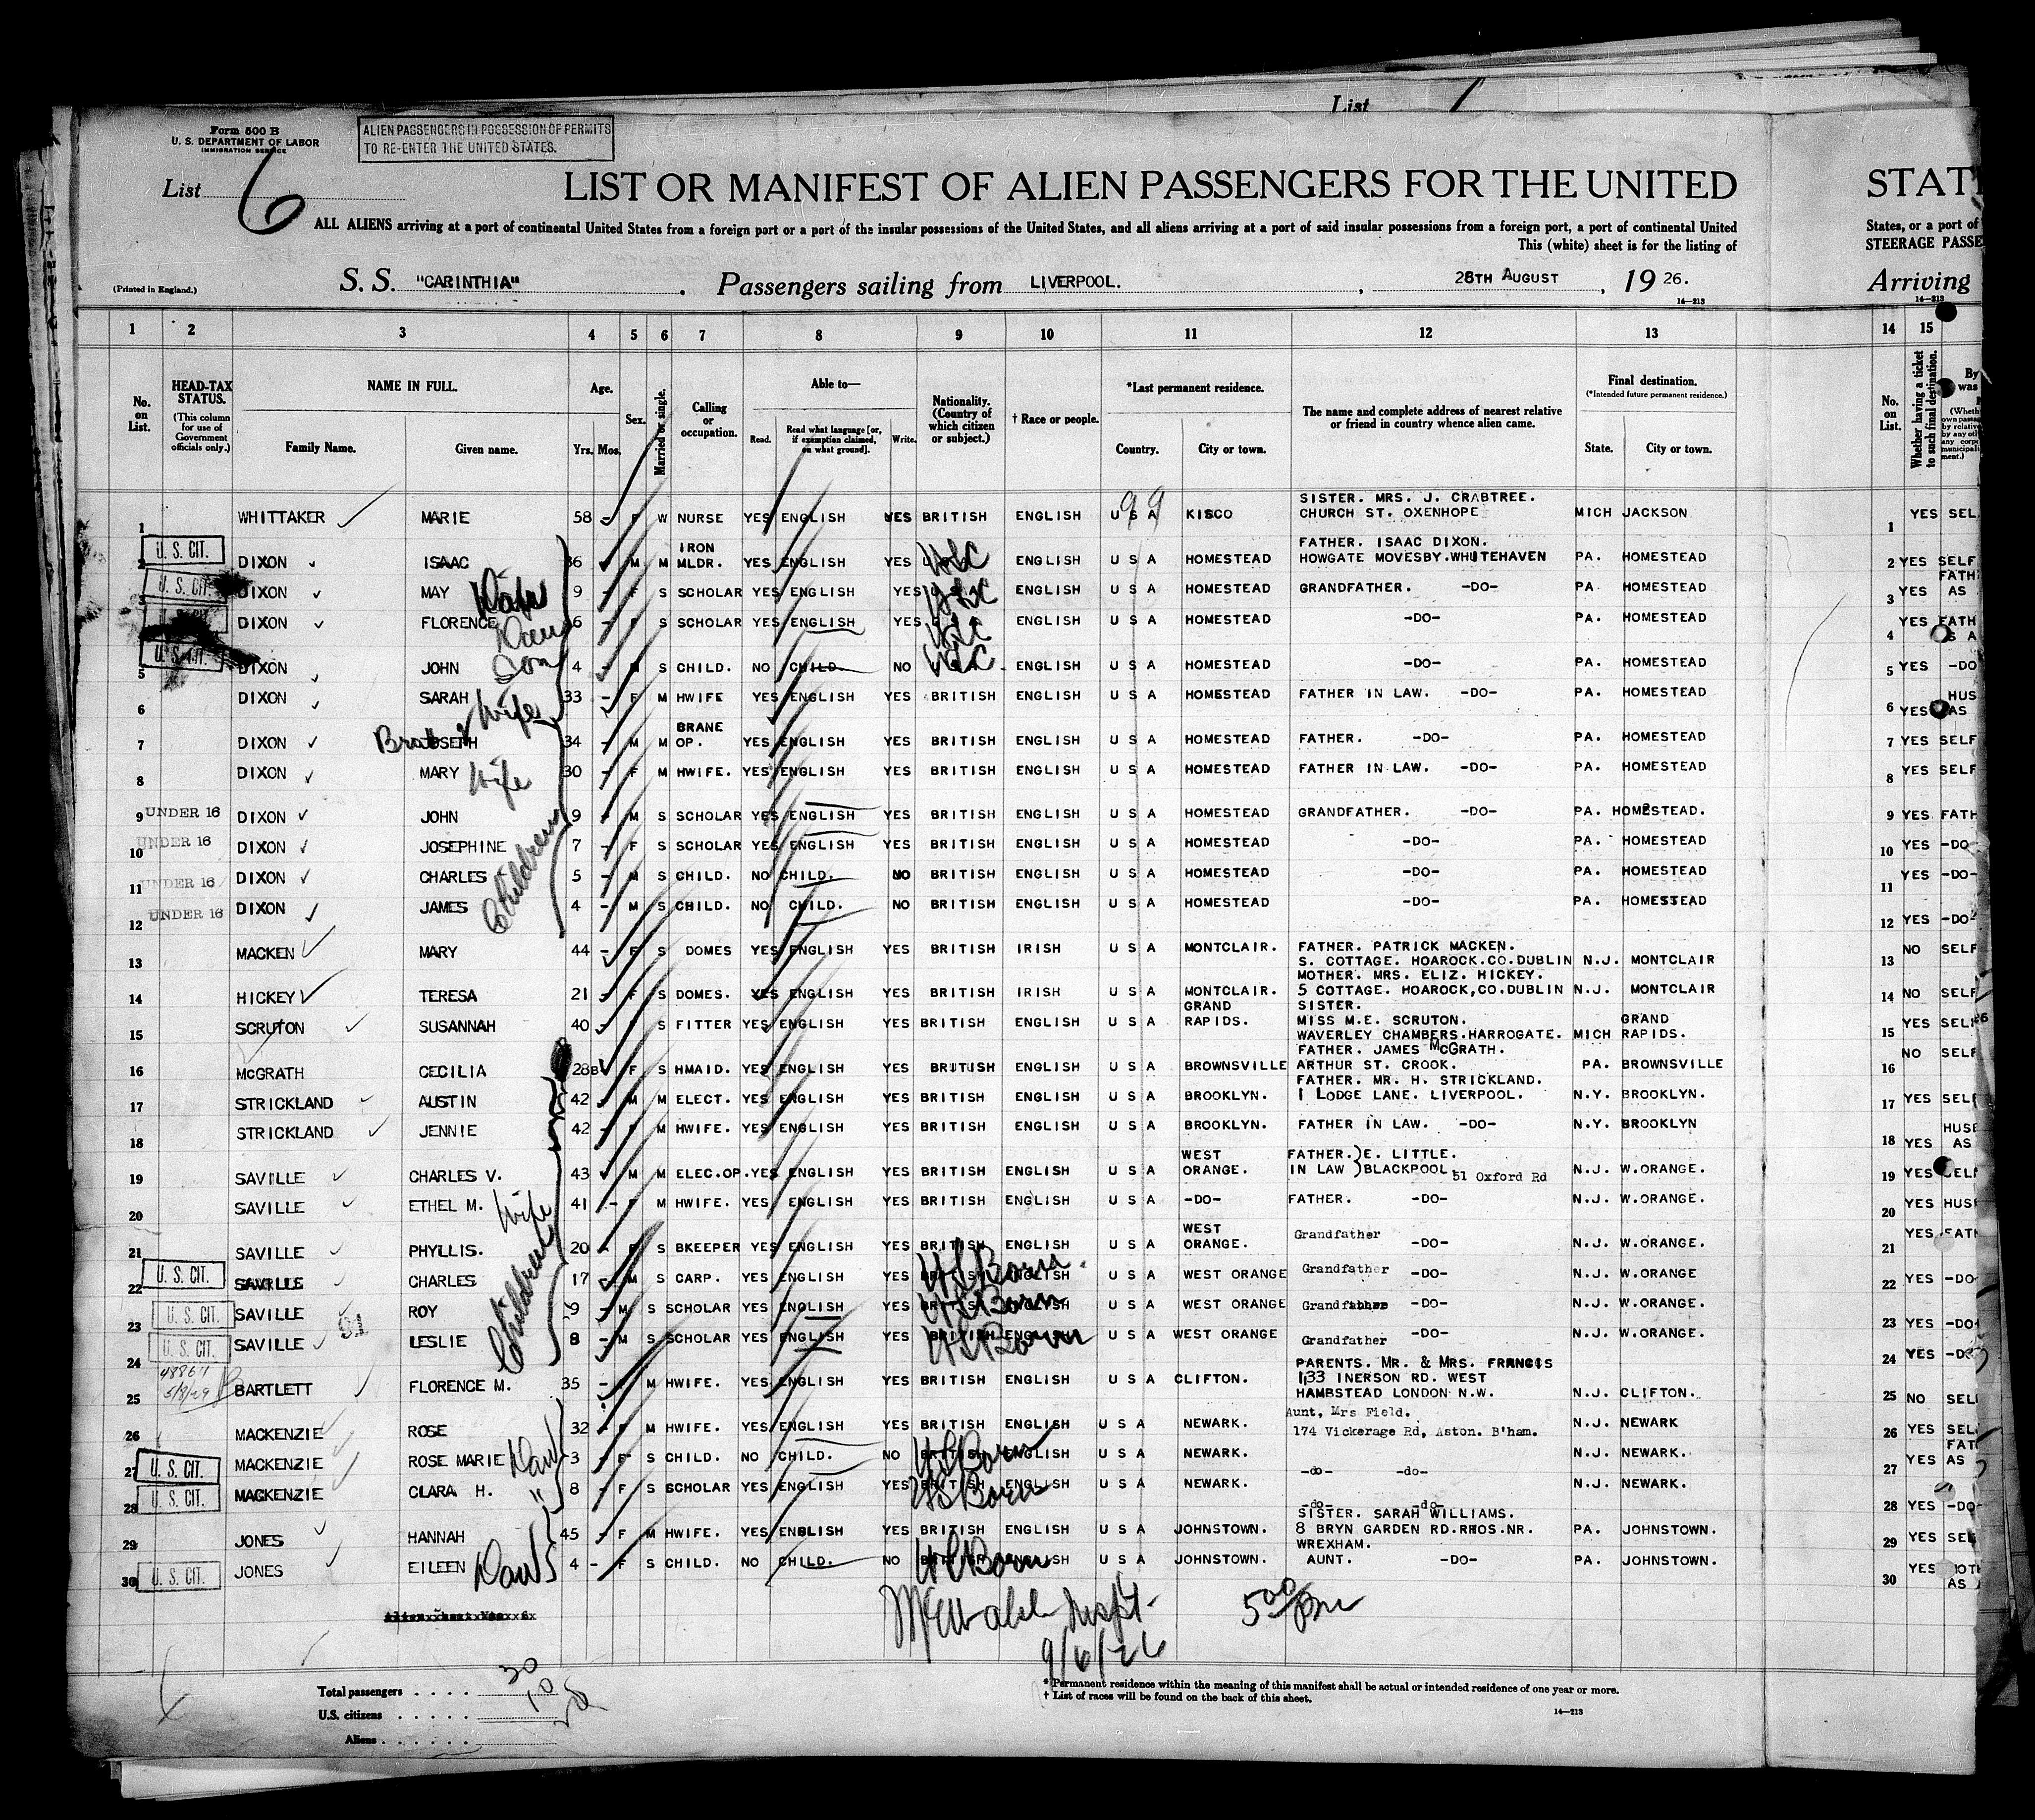 List 1
Form 500 B
U. S. DEPARTMENT OF LABOR
IMMIGRATION SERVICE
ALIEN PASSENGERS IN POSSESSION OF PERMITS
TO RE-ENTER THE UNITED STATES.
List 6
LIST OR MANIFEST OF ALIEN PASSENGERS FOR THE UNITED STATE
ALL ALIENS arriving at a port of continental United States from a foreign port or a port of the insular possessions of the United States, and all aliens arriving at a port of said insular possessions from a foreign port, a port of continental United States, or a port of
This (white) sheet is for the listing of STEERAGE PASSE
(Printed in England.)
S. S. "CARINTHIA" . Passengers sailing from LIVERPOOL. , 28TH AUGUST , 19 26. Arriving
14—213 14—213
1 2 3 4 5 6 7 8 9 10 11 12 13 14 15
No. on List.
HEAD-TAX STATUS.
(This column for use of Government officials only.)
NAME IN FULL.
Family Name. Given name.
Age.
Yrs. Mos.
Sex.
Married or single.
Calling or occupation.
Able to—
Read. Read what language [or, if exemption claimed, on what ground]. Write.
Nationality. (Country of which citizen or subject.)
† Race or people.
*Last permanent residence.
Country. City or town.
The name and complete address of nearest relative or friend in country whence alien came.
Final destination.
(*Intended future permanent residence.)
State. City or town.
No. on List.
Whether having a ticket to such final destination.
By was
99
SISTER. MRS. J. CRABTREE.
1 WHITTAKER MARIE 58 - F W NURSE YES ENGLISH YES BRITISH ENGLISH U S A KISCO CHURCH ST. OXENHOPE MICH JACKSON 1 YES SEL
IRON FATHER. ISAAC DIXON.
2 U. S. CIT. DIXON ISAAC 36 M M MLDR. YES ENGLISH YES USC ENGLISH U S A HOMESTEAD HOWGATE MOVESBY.WHITEHAVEN PA. HOMESTEAD 2 YES SELF
3 U. S. CIT. DIXON MAY Daur 9 - F S SCHOLAR YES ENGLISH YES USC ENGLISH U S A HOMESTEAD GRANDFATHER. -DO- PA. HOMESTEAD 3 YES FATH AS
4 DIXON FLORENCE Daur 6 - F S SCHOLAR YES ENGLISH YES USC ENGLISH U S A HOMESTEAD -DO- PA. HOMESTEAD 4 YES FATH S A
5 U. S. CIT. DIXON JOHN Son 4 - M S CHILD. NO CHILD. NO USC ENGLISH U S A HOMESTEAD -DO- PA. HOMESTEAD 5 YES -DO
6 DIXON SARAH Wife 33 - F M HWIFE YES ENGLISH YES BRITISH ENGLISH U S A HOMESTEAD FATHER IN LAW. -DO- PA. HOMESTEAD 6 YES HUS AS
BRANE
7 DIXON Brother JOSEPH 34 - M M OP. YES ENGLISH YES BRITISH ENGLISH U S A HOMESTEAD FATHER. -DO- PA. HOMESTEAD 7 YES SELF
8 DIXON MARY Wife 30 - F M HWIFE. YES ENGLISH YES BRITISH ENGLISH U S A HOMESTEAD FATHER IN LAW. -DO- PA. HOMESTEAD 8 YES SELF
9 UNDER 16 DIXON JOHN 9 - M S SCHOLAR YES ENGLISH YES BRITISH ENGLISH U S A HOMESTEAD GRANDFATHER. -DO- PA. HOMESTEAD. 9 YES FATH
10 UNDER 16 DIXON JOSEPHINE 7 - F S SCHOLAR YES ENGLISH YES BRITISH ENGLISH U S A HOMESTEAD -DO- PA. HOMESTEAD 10 YES -DO-
Children
11 UNDER 16 DIXON CHARLES 5 - M S CHILD. NO CHILD. NO BRITISH ENGLISH U S A HOMESTEAD -DO- PA. HOMESTEAD 11 YES -DO-
12 UNDER 16 DIXON JAMES 4 - M S CHILD. NO CHILD. NO BRITISH ENGLISH U S A HOMESTEAD -DO- PA. HOMESTEAD 12 YES -DO-
13 MACKEN MARY 44 - F S DOMES YES ENGLISH YES BRITISH IRISH U S A MONTCLAIR. FATHER. PATRICK MACKEN.
S. COTTAGE. HOAROCK.CO.DUBLIN N.J. MONTCLAIR 13 NO SELF
MOTHER. MRS. ELIZ. HICKEY.
14 HICKEY TERESA 21 - F S DOMES. YES ENGLISH YES BRITISH IRISH U S A MONTCLAIR. 5 COTTAGE. HOAROCK,CO.DUBLIN N.J. MONTCLAIR 14 NO SELF
GRAND SISTER.
15 SCRUTON SUSANNAH 40 - F S FITTER YES ENGLISH YES BRITISH ENGLISH U S A RAPIDS. MISS M.E. SCRUTON. GRAND
WAVERLEY CHAMBERS.HARROGATE. MICH RAPIDS. 15 YES SELF
FATHER. JAMES McGRATH.
16 McGRATH CECILIA 28 F S HMAID. YES ENGLISH YES BRITISH ENGLISH U S A BROWNSVILLE ARTHUR ST. CROOK. PA. BROWNSVILLE 16 NO SELF
FATHER. MR. H. STRICKLAND.
17 STRICKLAND AUSTIN 42 - M M ELECT. YES ENGLISH YES BRITISH ENGLISH U S A BROOKLYN. 1 LODGE LANE. LIVERPOOL. N.Y. BROOKLYN. 17 YES SELF
18 STRICKLAND JENNIE 42 - F M HWIFE. YES ENGLISH YES BRITISH ENGLISH U S A BROOKLYN. FATHER IN LAW. -DO- N.Y. BROOKLYN 18 YES HUSB AS
WEST FATHER.)E. LITTLE.
19 SAVILLE CHARLES V. 43 M M ELEC.OP. YES ENGLISH YES BRITISH ENGLISH U S A ORANGE. IN LAW )BLACKPOOL. 51 Oxford Rd N.J. W.ORANGE. 19 YES SELF
20 SAVILLE ETHEL M. Wife 41 - F M HWIFE. YES ENGLISH YES BRITISH ENGLISH U S A -DO- FATHER. -DO- N.J. W.ORANGE. 20 YES HUS
WEST Grandfather
21 SAVILLE PHYLLIS. 20 - F S BKEEPER YES ENGLISH YES BRITISH ENGLISH U S A ORANGE. -DO- N.J. W.ORANGE. 21 YES FATH
Children
22 U. S. CIT. SAVILLE CHARLES 17 - M S CARP. YES ENGLISH YES BRITISH ENGLISH US Born U S A WEST ORANGE Grandfather -DO- N.J. W.ORANGE 22 YES -DO-
23 U. S. CIT. SAVILLE ROY 9 - M S SCHOLAR YES ENGLISH YES BRITISH ENGLISH US Born U S A WEST ORANGE Grandfather -DO- N.J. W.ORANGE. 23 YES -DO-
24 U. S. CIT. SAVILLE LESLIE 8 - M S SCHOLAR YES ENGLISH YES BRITISH ENGLISH US Born U S A WEST ORANGE Grandfather -DO- N.J. W.ORANGE. 24 YES -DO
PARENTS. MR. & MRS. FRANCIS
5/8/29
25 BARTLETT FLORENCE M. 35 - F M HWIFE. YES ENGLISH YES BRITISH ENGLISH U S A CLIFTON. 133 INERSON RD. WEST
HAMBSTEAD LONDON N.W. N.J. CLIFTON. 25 NO SEL
Aunt, Mrs Field.
26 MACKENZIE ROSE 32 - F M HWIFE. YES ENGLISH YES BRITISH ENGLISH U S A NEWARK. 174 Vickerage Rd, Aston. B'ham. N.J. NEWARK 26 YES SEL
27 U. S. CIT. MACKENZIE ROSE MARIE Daur 3 - F S CHILD. NO CHILD. NO BRITISH ENGLISH US Born U S A NEWARK. -do- -do- N.J. NEWARK. 27 YES FAT AS
28 U. S. CIT. MACKENZIE CLARA H. " 8 - F S SCHOLAR YES ENGLISH YES BRITISH ENGLISH US Born U S A NEWARK. -do- -do- N.J. NEWARK. 28 YES -DO-
SISTER. SARAH WILLIAMS.
29 JONES HANNAH 45 - F M HWIFE. YES ENGLISH YES BRITISH ENGLISH U S A JOHNSTOWN. 8 BRYN GARDEN RD.RHOS.NR.
WREXHAM. PA. JOHNSTOWN. 29 YES SEL
30 U. S. CIT. JONES EILEEN Daur 4 - F S CHILD. NO CHILD. NO BRITISH ENGLISH US Born U S A JOHNSTOWN. AUNT. -DO- PA. JOHNSTOWN. 30 YES MOTH AS A
Inspt. 5 00 pm
9/6/26
Total passengers . . . . 30
U.S. citizens . . . . . 10
Aliens . . . . . . 20
* Permanent residence within the meaning of this manifest shall be actual or intended residence of one year or more.
† List of races will be found on the back of this sheet.
14—213